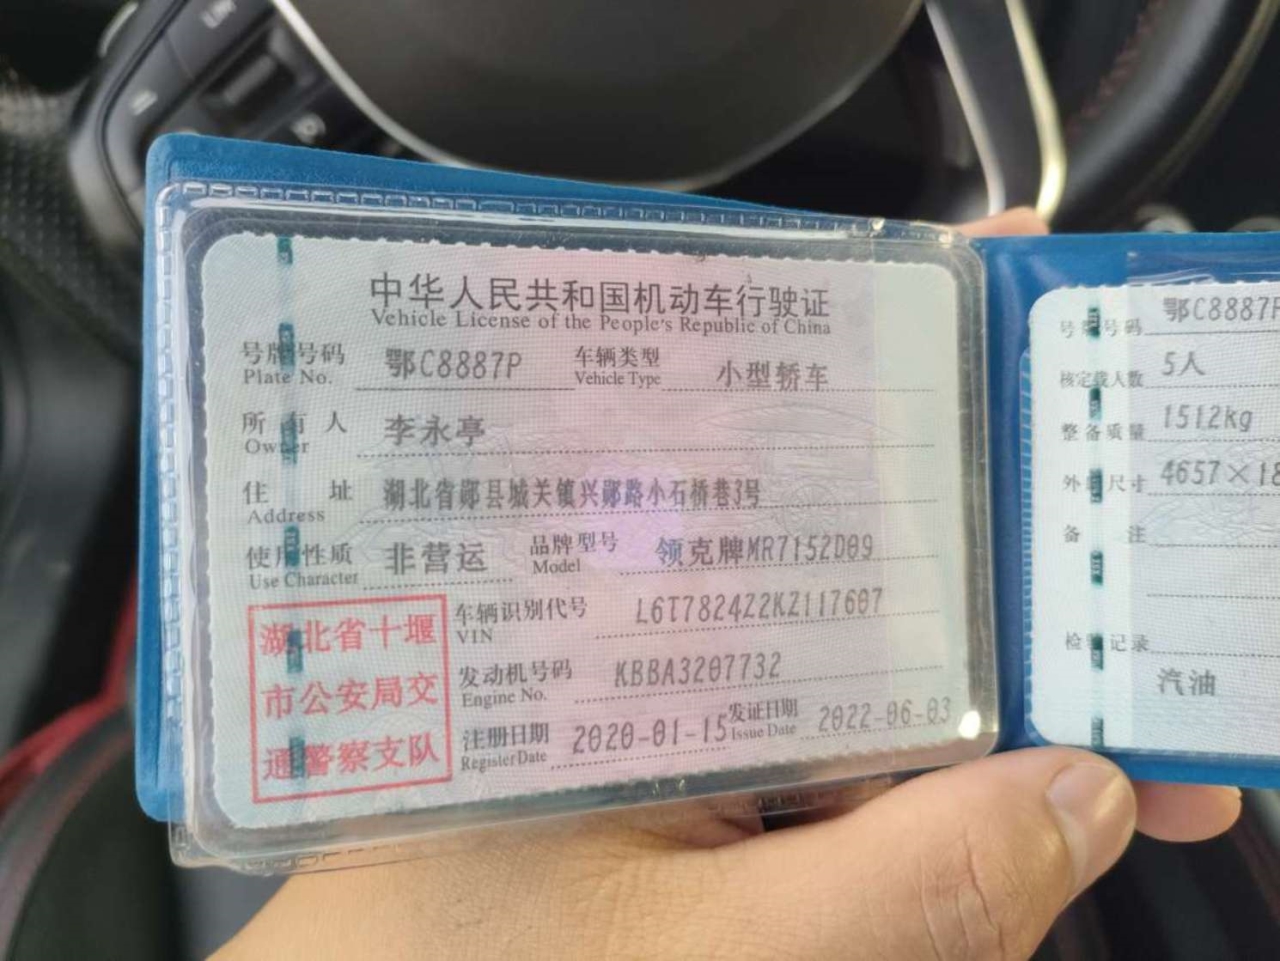 中华人民共和国机动车行驶证
Vehicle License of the People's Republic of China
号牌号码 鄂C8887P 车辆类型 小型轿车
Plate No. Vehicle Type
所有人 李永亭
Owner
住址 湖北省郧县城关镇兴郧路小石桥巷3号
Address
使用性质 非营运 品牌型号 领克牌MR7152D09
Use Character Model
车辆识别代号 L6T7824Z2KZ117607
VIN
发动机号码 KBBA3207732
Engine No.
注册日期 2020-01-15 发证日期 2022-06-03
Register Date Issue Date
湖北省十堰
市公安局交
通警察支队
号牌号码 鄂C8887P
核定载人数 5人
整备质量 1512kg
外廓尺寸 4657×18
备注
检验记录
汽油